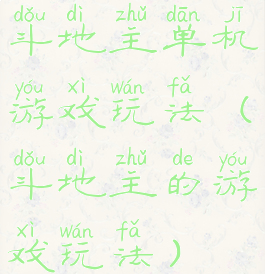 dǒu dì zhǔ dān jī
斗地主单机
yóu xì wán fǎ
游戏玩法（
dǒu dì zhǔ de yóu
斗地主的游
xì wán fǎ
戏玩法）